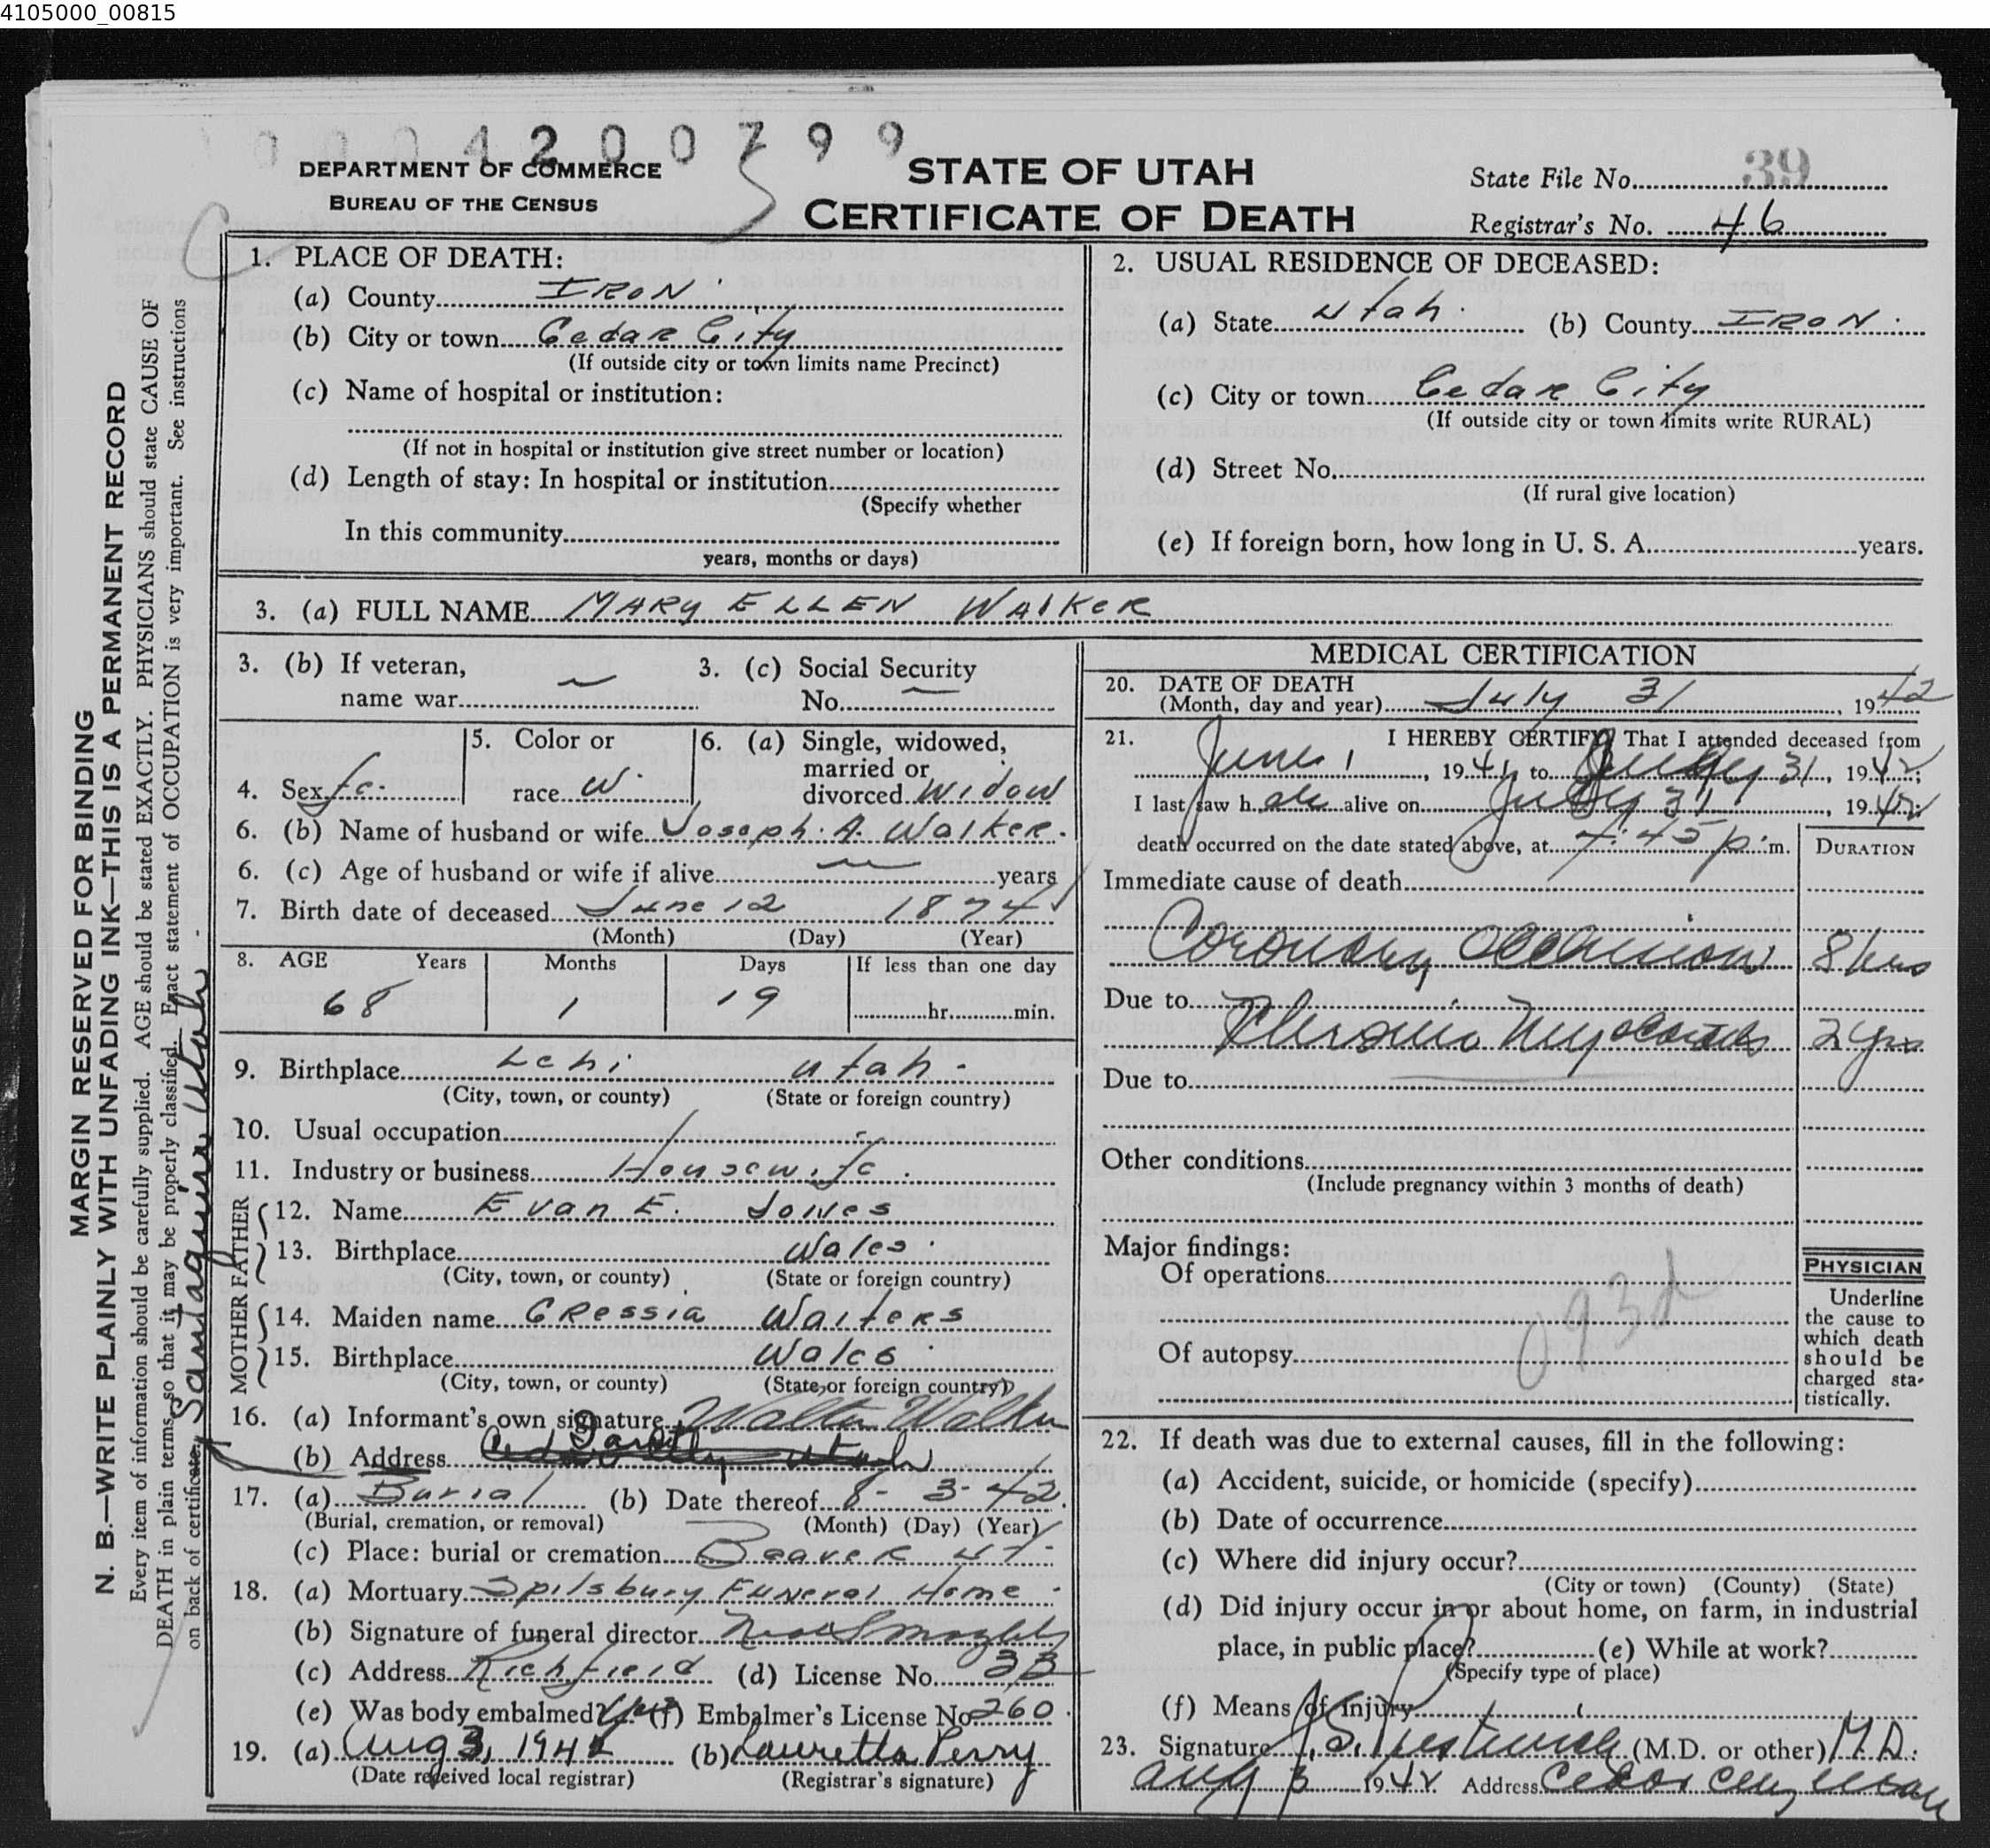 4105000_00815
0004200799
DEPARTMENT OF COMMERCE
BUREAU OF THE CENSUS
STATE OF UTAH
CERTIFICATE OF DEATH
State File No. 39
Registrar's No. 46
MARGIN RESERVED FOR BINDING
N. B.—WRITE PLAINLY WITH UNFADING INK—THIS IS A PERMANENT RECORD
Every item of information should be carefully supplied. AGE should be stated EXACTLY. PHYSICIANS should state CAUSE OF
DEATH in plain terms, so that it may be properly classified. Exact statement of OCCUPATION is very important. See instructions
on back of certificate.
Santaquin Utah
1. PLACE OF DEATH:
(a) County IRON
(b) City or town Cedar City
(If outside city or town limits name Precinct)
(c) Name of hospital or institution:
(If not in hospital or institution give street number or location)
(d) Length of stay: In hospital or institution
(Specify whether
In this community
years, months or days)
2. USUAL RESIDENCE OF DECEASED:
(a) State Utah (b) County IRON
(c) City or town Cedar City
(If outside city or town limits write RURAL)
(d) Street No.
(If rural give location)
(e) If foreign born, how long in U. S. A. years.
3. (a) FULL NAME MARY ELLEN WALKER
3. (b) If veteran,
name war
3. (c) Social Security
No.
4. Sex fe.
5. Color or
race W.
6. (a) Single, widowed,
married or
divorced Widow
6. (b) Name of husband or wife Joseph. A. Walker.
6. (c) Age of husband or wife if alive years
7. Birth date of deceased June 12 1874
(Month) (Day) (Year)
8. AGE Years Months Days If less than one day
68 1 19 hr. min.
9. Birthplace Lehi Utah
(City, town, or county) (State or foreign country)
10. Usual occupation
11. Industry or business Housewife
FATHER
12. Name Evan E. Jones
13. Birthplace Wales
(City, town, or county) (State or foreign country)
MOTHER
14. Maiden name Cressia Walters
15. Birthplace Wales
(City, town, or county) (State or foreign country)
16. (a) Informant's own signature Walter Walker
(b) Address Utah
17. (a) Burial (b) Date thereof 8- 3- 42
(Burial, cremation, or removal) (Month) (Day) (Year)
(c) Place: burial or cremation Beaver UT-
18. (a) Mortuary Spilsbury Funeral Home
(b) Signature of funeral director
(c) Address Richfield (d) License No. 33
(e) Was body embalmed? Yes (f) Embalmer's License No. 260
19. (a) Aug 3, 1942 (b) Lauretta Perry
(Date received local registrar) (Registrar's signature)
MEDICAL CERTIFICATION
20. DATE OF DEATH
(Month, day and year) July 31, 1942
21. I HEREBY CERTIFY, That I attended deceased from
June 1, 1941, to July 31, 1942;
I last saw h er alive on July 31, 1942;
death occurred on the date stated above, at 7:45 p. m.
DURATION
Immediate cause of death
Coronary Occlusion 8 hrs
Due to
Chronic Myocarditis 2 yrs
Due to
Other conditions
(Include pregnancy within 3 months of death)
Major findings:
Of operations
Of autopsy
PHYSICIAN
Underline
the cause to
which death
should be
charged sta-
tistically.
22. If death was due to external causes, fill in the following:
(a) Accident, suicide, or homicide (specify)
(b) Date of occurrence
(c) Where did injury occur?
(City or town) (County) (State)
(d) Did injury occur in or about home, on farm, in industrial
place, in public place? (e) While at work?
(Specify type of place)
(f) Means of injury
23. Signature (M.D. or other) M.D.
Aug 3 1942 Address Cedar City Utah